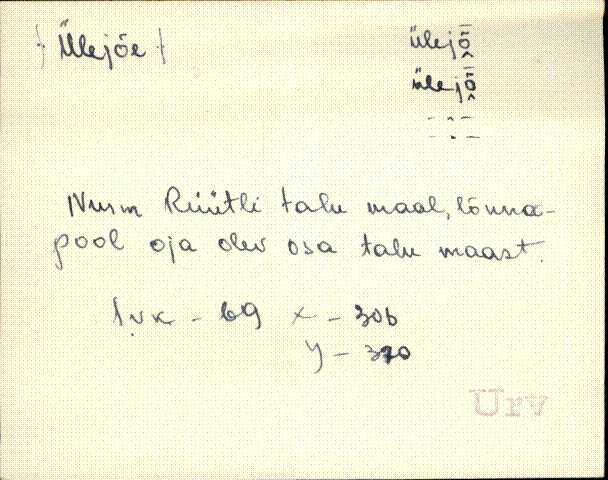 {Ülejõe}
ülejȭ̭
ülejȭ̭
Nurm Rüütli talu maal, lõuna-
pool oja olev osa talu maast.
1vk - 69 x - 306
y - 320
Urv